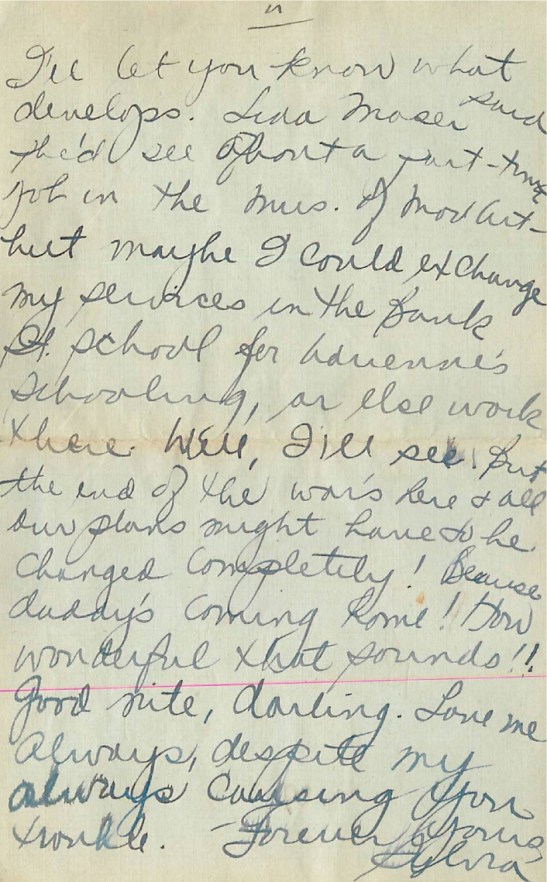 I'll let you know what
develops. Lida Moser said
she'd see about a part-time
job in the Mus. of Mod Art -
but maybe I could exchange
my services in the Bank
St. school for Adrienne's
schooling, or else work
there. Well, I'll see. But
the end of the war's here & all
our plans might have to be
changed completely! Because
daddy's coming home! How
wonderful that sounds!!
Good nite, darling. Love me
always, despite my
always causing you
trouble. Forever Yours,
Sylvia